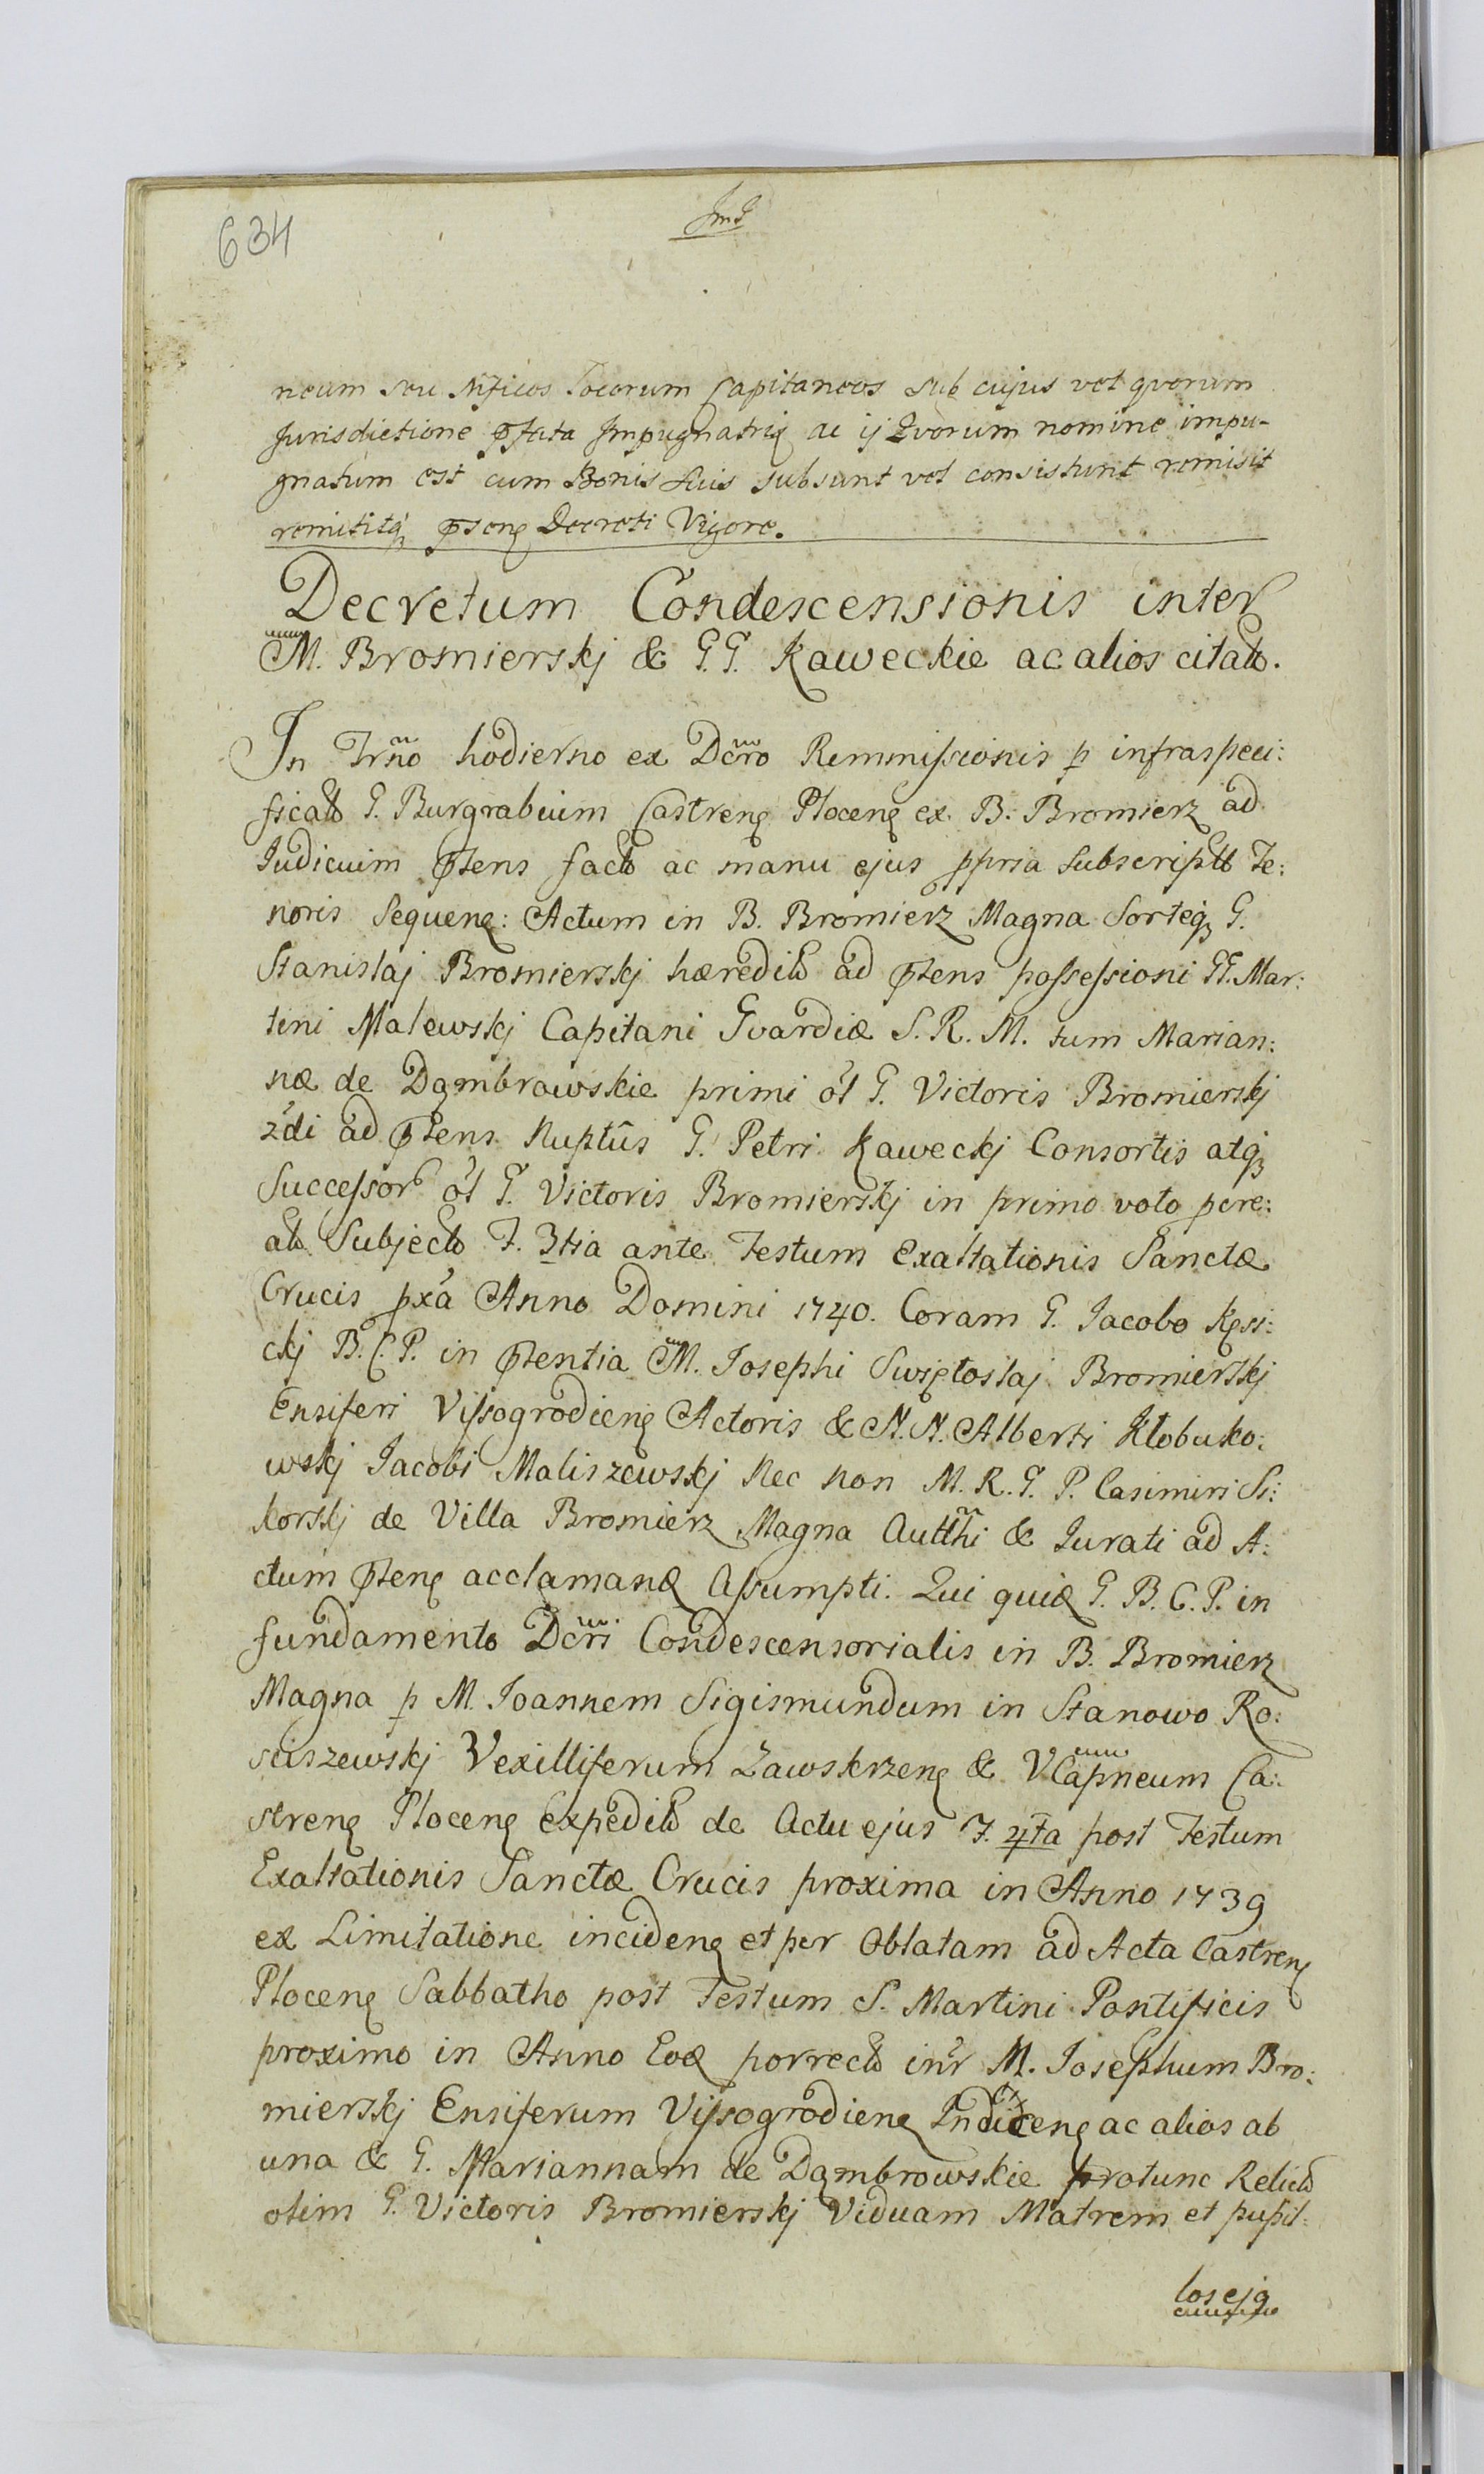 634
neum seu Mficos Locorum Capitaneos sub cujus vel qvorum
Jurisdictione pfata Impugnatrix ac ij Qvorum nomine impu-
gnatum est cum Bonis suis subsunt vel consistunt remisit
remititq psens Decreti Vigore.
Decretum Condescensionis inter
M. Bromierskj & G.G. Kaweckie ac alios citatos.
In Trno hodierno ex Dcro Remmissionis p infraspeci:
ficato G. Burgrabium Castrens Plocens ex B. Bromierz ad
Iudicium ptens facto ac manu ejus ppria subscripto Te:
noris Sequens: Actum in B. Bromierz Magna Sorteq G.
Stanislaj Bromierskj hæredit ad ptens possessioni GG. Mar:
tini Malewskj Capitani Gvardiæ S. R. M. tum Marian:
næ de Dąmbrowskie primi ol G. Victoris Bromierskj
2di ad ptens Nuptus G. Petri Kaweckj Consortis atq
Successor ol G. Victoris Bromierskj in primo voto pcre:
at Subjecto F. 3tia ante Festum Exaltationis Sanctæ
Crucis pxa Anno Domini 1740. Coram G. Iacobo Kęsi:
ckj B. C. P. in ptentia M. Iosephi Swiętoslaj Bromierskj
Ensiferi Vissogrodiens Actoris & N. N. Alberti Klobuko:
wskj Iacobi Maliszewskj Nec non M. R. G. P. Casimiri Si:
korskj de Villa Bromierz Magna Autthi & Iurati ad A:
ctum ptens acclamand Assumpti. Qui quid G. B. C. P. in
fundamento Dcri Condescensorialis in B. Bromierz
Magna p M. Ioannem Sigismundum in Stanowo Ro:
sciszewskj Vexilliferum Zawskrzens & VCapneum Ca:
strens Plocens Expedit de Actu ejus F. 4ta post Festum
Exaltationis Sanctæ Crucis proxima in Anno 1739
ex Limitatione incidens et per Oblatam ad Acta Castrens
Plocens Sabbatho post Festum S. Martini Pontificis
proximo in Anno Eod porrecto intr M. Iosephum Bro:
mierskj Ensiferum Vissogrodiens ac alios ab
una & G. Mariannam de Dąmbrowskie protunc Relict
olim G. Victoris Bromierskj Viduam Matrem et pupil:
los ejq